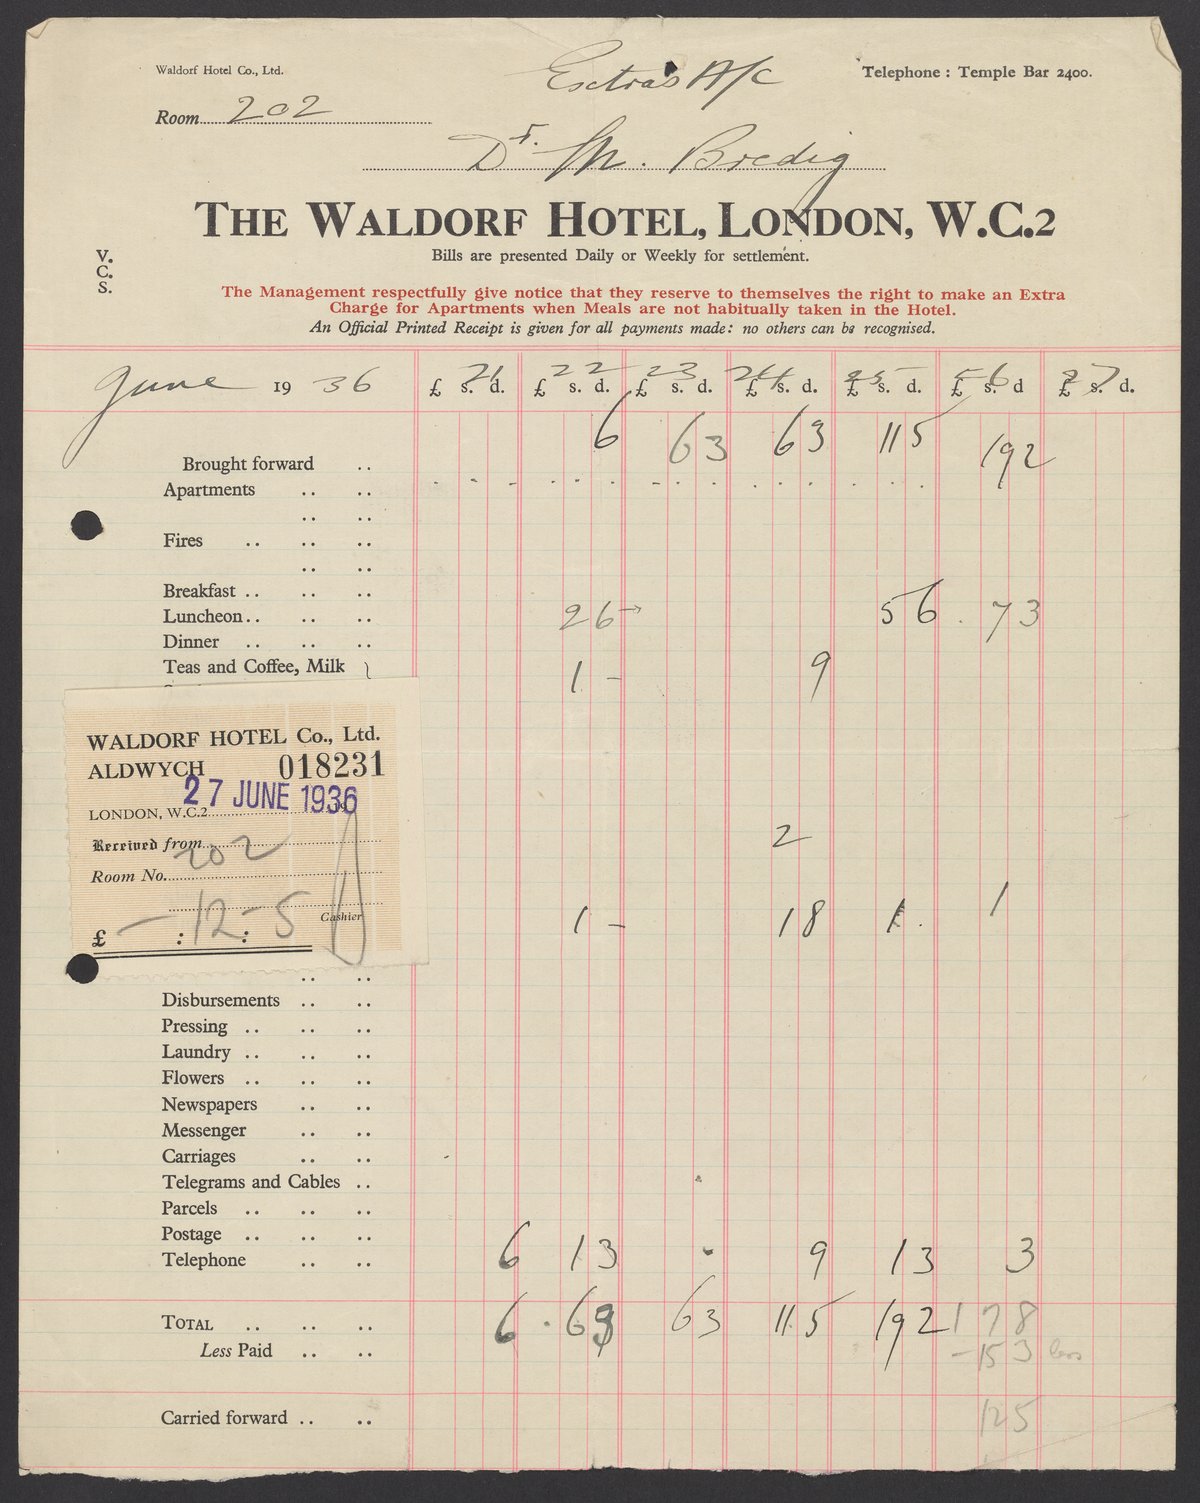 Waldorf Hotel Co., Ltd.
Extras A/C
Telephone : Temple Bar 2400.
Room 202
Dr. M. Bredig
THE WALDORF HOTEL, LONDON, W.C.2
V.
C.
S.
Bills are presented Daily or Weekly for settlement.
The Management respectfully give notice that they reserve to themselves the right to make an Extra
Charge for Apartments when Meals are not habitually taken in the Hotel.
An Official Printed Receipt is given for all payments made: no others can be recognised.
June 1936 21 22 23 24 25 26 27
£ s. d. £ s. d. £ s. d. £ s. d. £ s. d. £ s. d £ s. d.
Brought forward .. 6 63 63 115 192
Apartments .. ..
.. ..
Fires .. .. ..
.. ..
Breakfast .. .. ..
Luncheon .. .. .. 26 56 73
Dinner .. .. ..
Teas and Coffee, Milk 1 - 9
WALDORF HOTEL Co., Ltd.
ALDWYCH 018231
27 JUNE 1936
LONDON, W.C.2 19
Received from
202
Room No.
Cashier
£ - : 12 : 5
2
1 - 18 1 1
.. ..
Disbursements .. ..
Pressing .. .. ..
Laundry .. .. ..
Flowers .. .. ..
Newspapers .. ..
Messenger .. ..
Carriages .. ..
Telegrams and Cables ..
Parcels .. .. ..
Postage .. .. ..
Telephone .. .. 6 13 9 13 3
TOTAL .. .. .. 6 63 63 115 192 178
Less Paid .. .. - 153 less
Carried forward .. .. 125